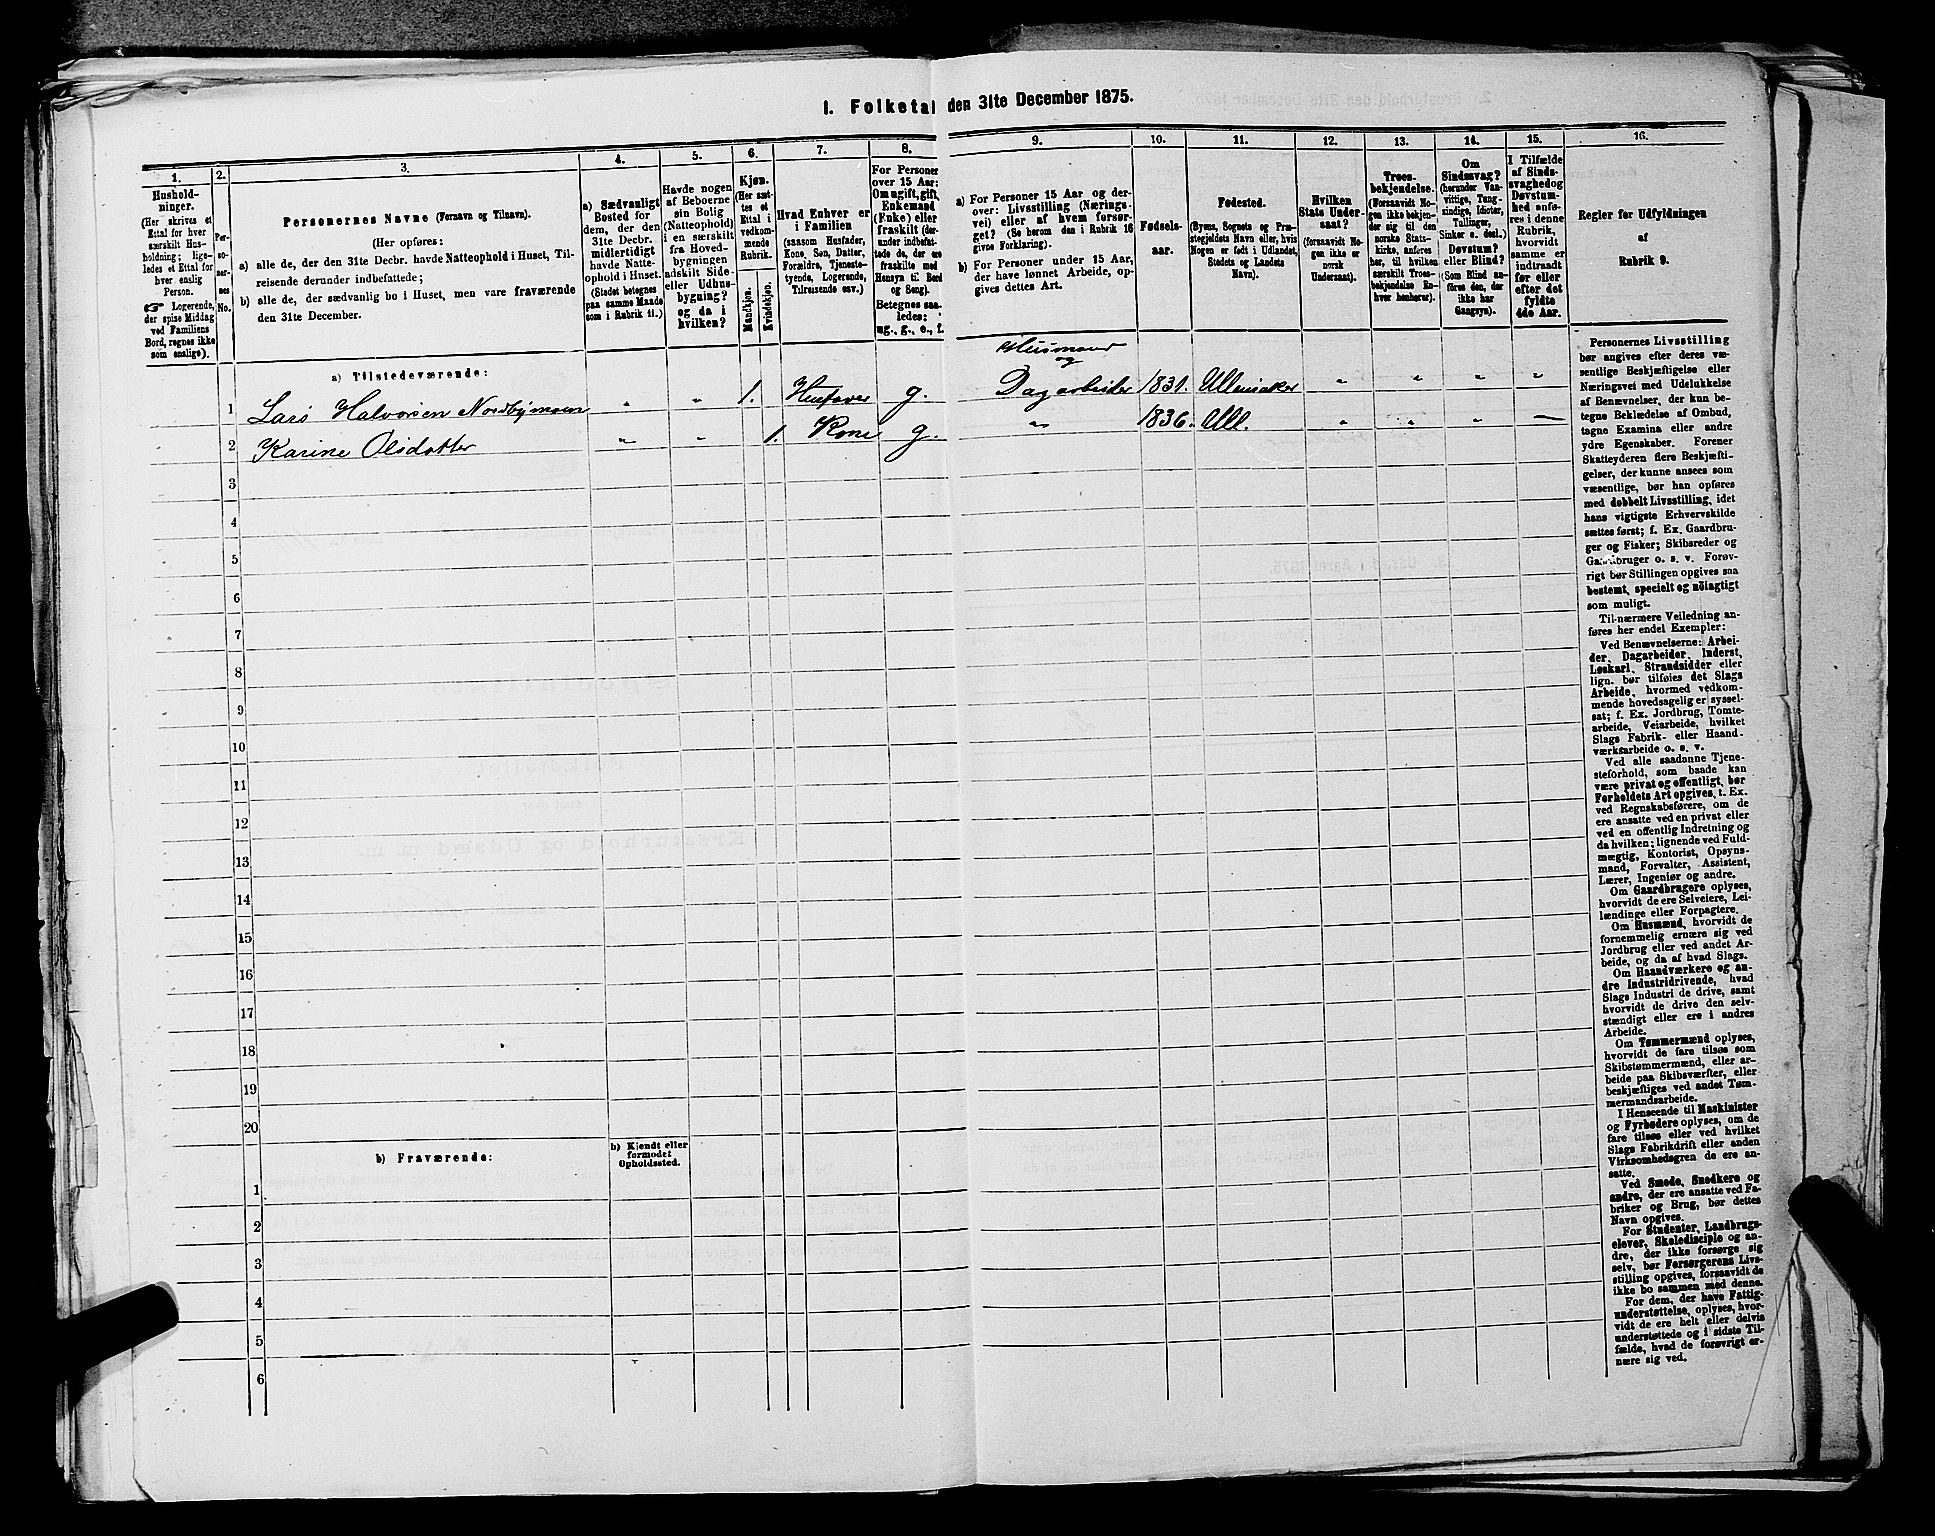 1. Folketal den 31te December 1875.
1.
Hushold-
ninger.
(Her skrives et
Ettal for hver
særskilt Hus-
holdning; lige-
ledes et Ettal for
hver enslig
Person.
☞ Logerende,
der spise Middag
ved Familiens
Bord, regnes ikke
som enslige).
2.
Per-
so-
ner-
nes
No.
3.
Personernes Navne (Fornavn og Tilnavn).
(Her opføres:
a) alle de, der den 31te Decbr. havde Natteophold i Huset, Til-
reisende derunder indbefattede;
b) alle de, der sædvanlig bo i Huset, men vare fraværende
den 31te December.
4.
a) Sædvanligt
Bosted for
dem, der den
31te Decbr.
midlertidigt
havde Natte-
ophold i Huset.
(Stedet betegnes
paa samme Maade
som i Rubrik 11.)
5.
Havde nogen
af Beboerne
sin Bolig
(Natteophold)
i en særskilt
fra Hoved-
bygningen
adskilt Side-
eller Udhus-
bygning?
og da i
hvilken?
6.
Kjøn.
(Her sæt-
tes et
Ettal i
vedkom-
mende
Rubrik.
Mandkjøn.
Kvindekjøn.
7.
Hvad Enhver er
i Familien
(saasom Husfader,
Kone, Søn, Datter,
Forældre, Tjeneste-
tyende, Logerende,
Tilreisende osv.)
8.
For Personer
over 15 Aar:
Om ugift, gift,
Enkemand
(Enke) eller
fraskilt (der-
under indbefat-
tede de, der
ere fraskilte med
Hensyn til Bord
og Seng).
Betegnes saa-
ledes:
ug., g., e., f.
9.
a) For Personer 15 Aar og der-
over: Livsstilling (Nærings-
vei) eller af hvem forsør-
get? (Se herom den i Rubrik 16
givne Forklaring).
b) For Personer under 15 Aar,
der have lønnet Arbeide, op-
gives dettes Art.
10.
Fødsels-
aar.
11.
Fødested.
(Byens, Sognets og Præ-
stegjeldets Navn eller, hvis
Nogen er født i Udlandet,
Stedets og Landets
Navn).
12.
Hvilken
Stats Under-
saat?
(forsaavidt No-
gen ikke er
norsk
Undersaat).
13.
Troes-
bekjendelse.
(Forsaavidt No-
gen ikke bekjen-
der sig til den
norske Stats-
kirke, anføres
her, til hvilken
særskilt Troes-
bekjendelse En-
hver henhører).
14.
Om
Sindssvag?
(herunder Van-
vittige, Tung-
sindige, Idioter,
Tullinger,
Sinker o. desl.)
Døvstum?
eller Blind?
(Som Blind an-
føres den, der
ikke har
Gangsyn).
15.
I Tilfælde
af Sinds-
svaghed og
Døvstum-
hed anfø-
res i denne
Rubrik,
hvorvidt
samme er
indtraadt
før eller
efter det
fyldte
4de Aar.
16.
Regler for Udfyldningen
af
Rubrik 9.
a) Tilstedeværende:
Husmand
og
1 Lars Halvorsen Nordbymoen " " 1. Husfader g. Dagarbeider 1831. Ullensaker " " " "
2 Karine Olsdatter " " 1. Kone g. " 1836. Ull. " " " —
3
4
5
6
7
8
9
10
11
12
13
14
15
16
17
18
19
20
b) Fraværende:
b) Kjendt eller
formodet
Opholdssted.
1
2
3
4
5
6
Personernes Livsstilling
bør angives efter deres væ-
sentlige Beskjæftigelse eller
Næringsvei med Udelukkelse
af Benævnelser, der kun be-
tegne Beklædelse af Ombud,
tagne Examina eller andre
ydre Egenskaber. Forener
Skatteyderen flere Beskjæfti-
gelser, der kunne ansees som
væsentlige, bør han opføres
med dobbelt Livsstilling, idet
hans vigtigste Erhvervskilde
sættes først; f. Ex. Gaardbru-
ger og Fisker; Skibsreder og
Gaardbruger o. s. v. Forøv-
rigt bør Stillingen opgives saa
bestemt, specielt og nöiagtigt
som muligt.
Til nærmere Veiledning an-
føres her endel Exempler:
Ved Benævnelserne: Arbei-
der, Dagarbeider, Inderst,
Løskarl, Strandsidder eller
lign. bør tilføies det Slags
Arbeide, hvormed vedkom-
mende hovedsagelig er syssel-
sat; f. Ex. Jordbrug, Tomte-
arbeide, Veiarbeide, hvilket
Slags Fabrik- eller Haand-
værksarbeide o. s. v.
Ved alle saadanne Tjene-
steforhold, som baade kan
være privat og offentligt, bør
Forholdets Art opgives, f. Ex.
ved Regnskabsførere, om de
ere ansatte ved en privat eller
ved en offentlig Indretning og
da hvilken; lignende ved Fuld-
mægtig, Kontorist, Opsyns-
mand, Forvalter, Assistent,
Lærer, Ingeniør og andre.
Om Gaardbrugere oplyses,
hvorvidt de ere Selveiere, Lei-
lændinge eller Forpagtere.
Om Husmænd, hvorvidt de
fornemmelig ernære sig ved
Jordbrug eller ved andet Ar-
beide, og da af hvad Slags.
Om Haandværkere og an-
dre Industridrivende, hvad
Slags Industri de drive, samt
hvorvidt de drive den selv-
stændigt eller ere i andres
Arbeide.
Om Tømmermænd oplyses,
hvorvidt de fare tilsøs som
Skibstømmermænd, eller ar-
beide paa Skibsværfter, eller
beskjæftiges ved andet Tøm-
mermandsarbeide.
I Henseende til Maskinister
og Fyrbødere oplyses, om de
fare tilsøs eller ved hvilket
Slags Fabrikdrift eller anden
Virksomhedsgren de ere an-
satte.
Ved Smede, Snedkere og
andre, der ere ansatte ved Fa-
briker og Brug, bør dettes
Navn opgives.
For Studenter, Landbrugs-
elever, Skoledisciple og an-
dre, der ikke forsørge sig
selv, bør Forsørgerens Livs-
stilling opgives, forsaavidt de
ikke bo sammen med denne.
For dem, der have Fattig-
understøttelse, oplyses, hvor-
vidt de ere helt eller delvis
understøttede og i sidste Til-
fælde, hvad de forøvrigt er-
nære sig ved.